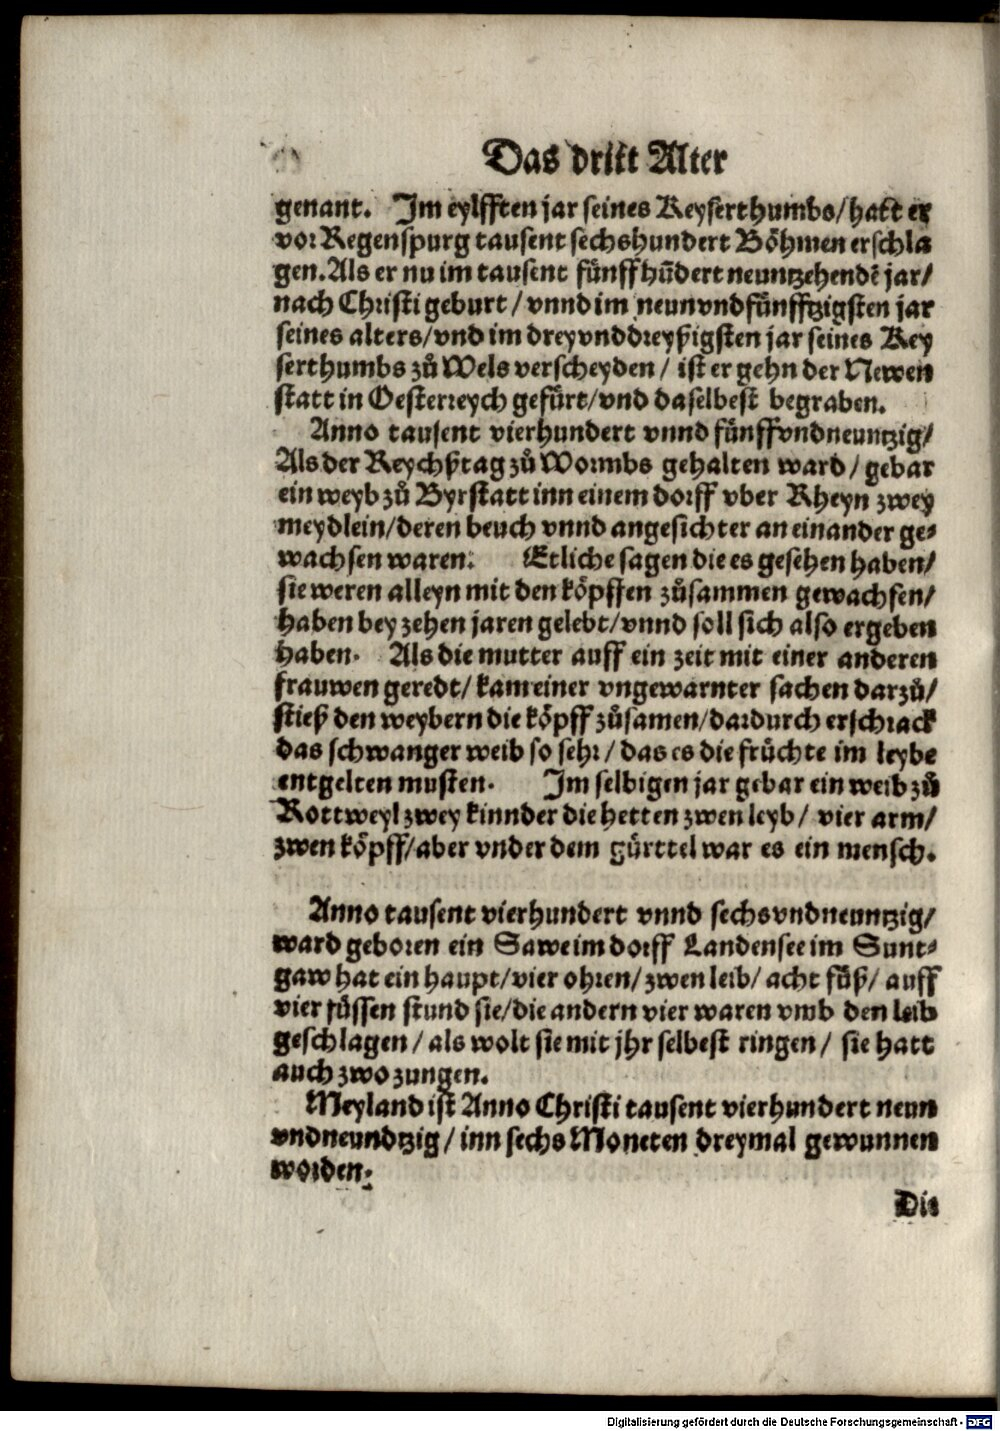 Das dritt Alter
genant. Im eylfften jar seines Keyserthumbs/hatt er
vor Regenspurg tausent sechshundert Böhmen erschla
gen. Als er nu im tausent fünffhūdert neuntzehendē jar/
nach Christi geburt/vnnd im neunvndfünfftzigsten jar
seines alters/vnd im dreyvnddreyßigsten jar seines Key
serthumbs zů Wels verscheyden/ist er gehn der Newen
statt in Oesterreych gefürt/vnd daselbest begraben.
Anno tausent vierhundert vnnd fünffvndneuntzig/
Als der Reychßtag zů Wormbs gehalten ward/gebar
ein weyb zů Byrstatt inn einem dorff vber Rheyn zwey
meydlein/deren beuch vnnd angesichter an einander ge⸗
wachsen waren. Etliche sagen die es gesehen haben/
sie weren alleyn mit den köpffen zůsammen gewachsen/
haben bey zehen jaren gelebt/vnnd soll sich also ergeben
haben. Als die mutter auff ein zeit mit einer anderen
frauwen geredt/kam einer vngewarnter sachen darzů/
stieß den weybern die köpff zůsamen/dardurch erschrack
das schwanger weib so sehr/das es die früchte im leybe
entgelten musten. Im selbigen jar gebar ein weib zů
Rottweyl zwey kinnder die hetten zwen leyb/vier arm/
zwen köpff/aber vnder dem gürttel war es ein mensch.
Anno tausent vierhundert vnnd sechsvndneuntzig/
ward geboren ein Saw im dorff Landensee im Sunt⸗
gaw hat ein haupt/vier ohren/zwen leib/acht füß/auff
vier füssen stund sie/die andern vier waren vmb den leib
geschlagen/als wolt sie mit jhr selbest ringen/sie hatt
auch zwo zungen.
Meyland ist Anno Christi tausent vierhundert neun
vndneundtzig/inn sechs Moneten dreymal gewunnen
worden.
Die
Digitalisierung gefördert durch die Deutsche Forschungsgemeinschaft - DFG